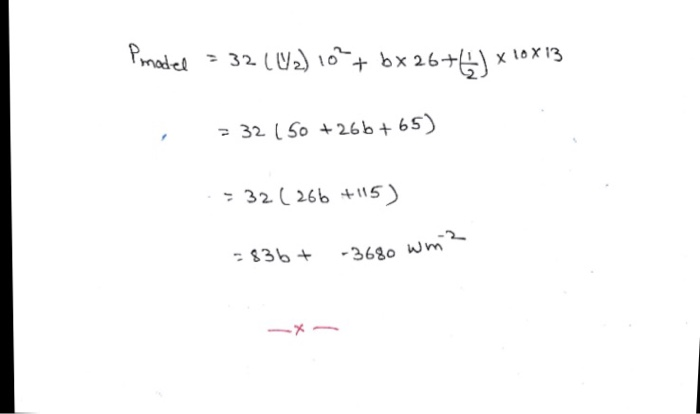 Pmodel = 32 (1/2) 10² + b × 26 + (1/2) × 10 × 13
= 32 (50 + 26b + 65)
= 32 (26b + 115)
= 83b + -3680 Wm⁻²
—x—